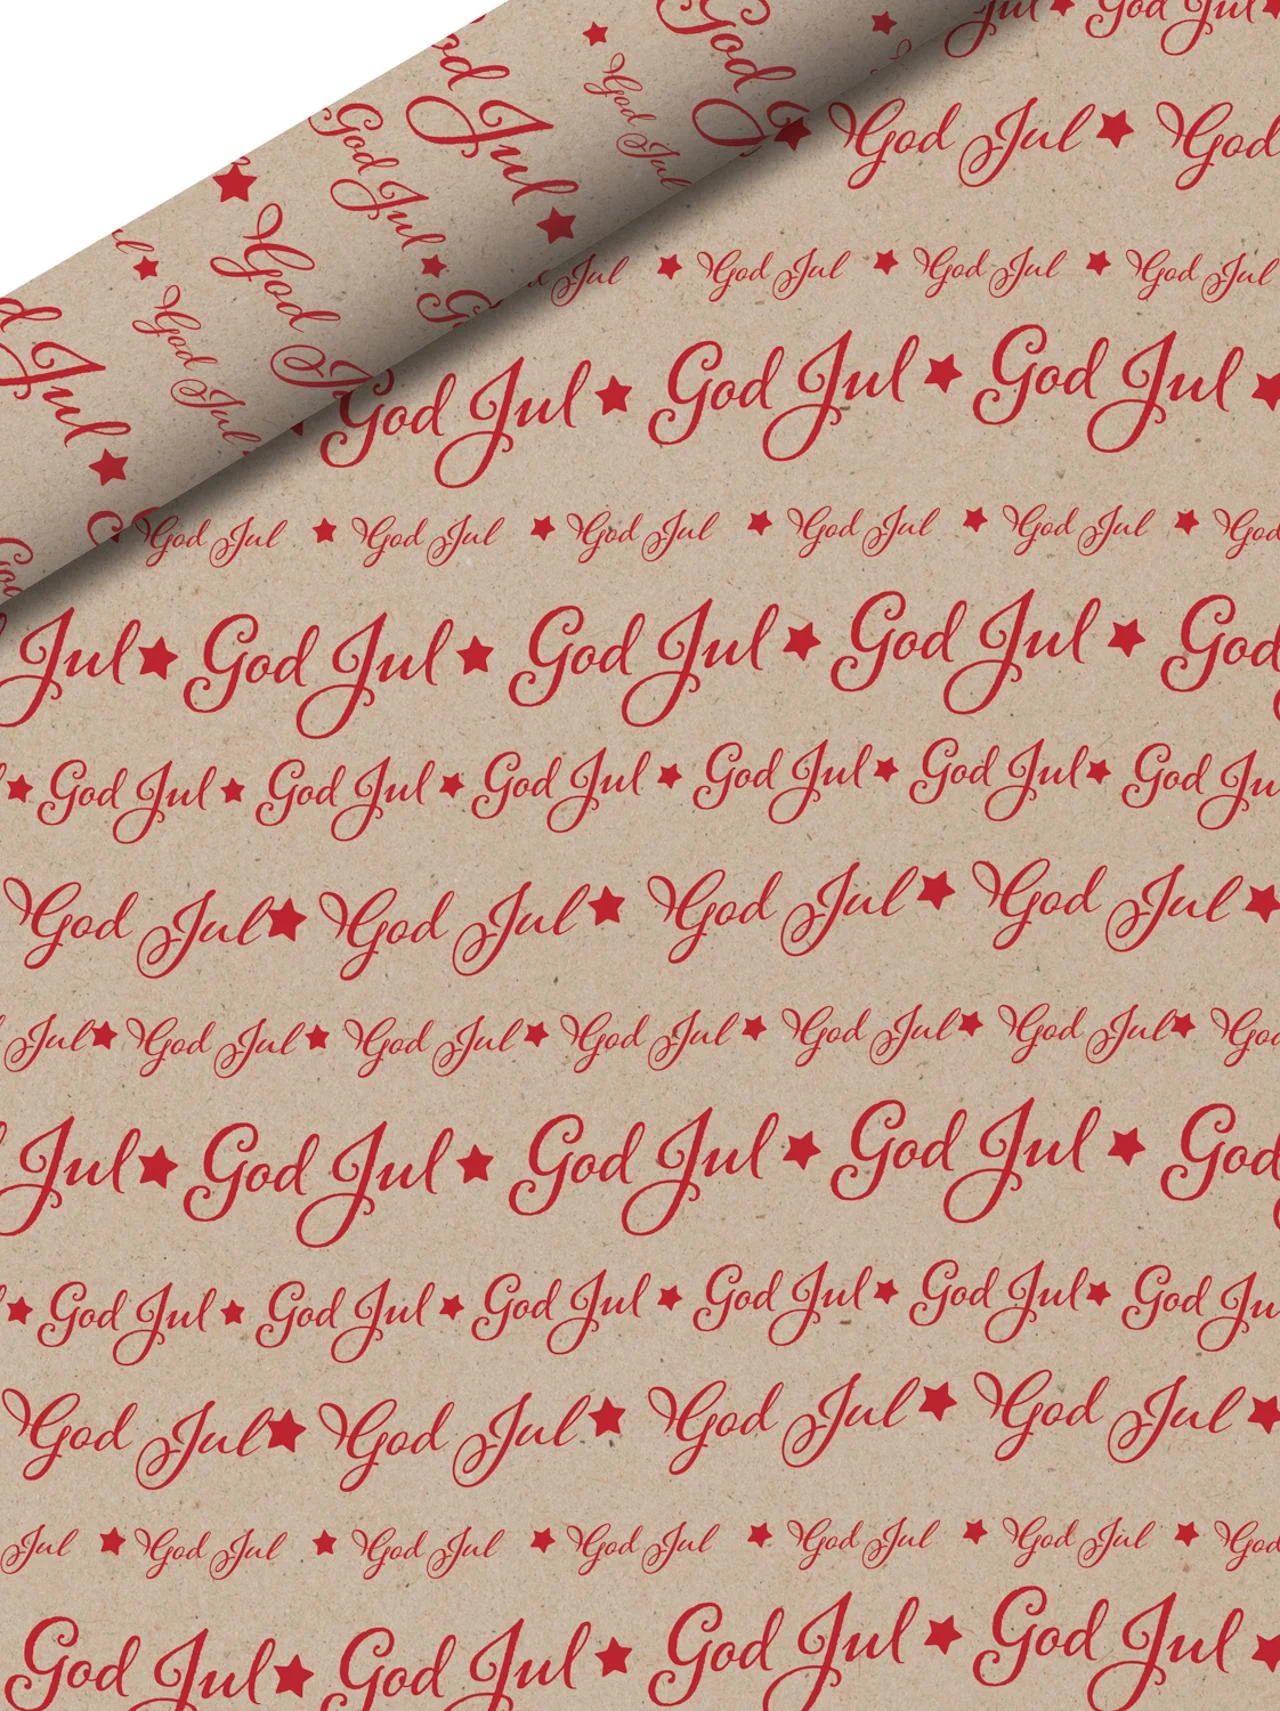 Jul
God Jul
God Jul
God Jul
God Jul
God Jul
God
Jul God Jul
God Jul God
Jul God Jul God Jul God Jul
God Jul God Jul God Jul
God Jul God Jul God Jul God Jul God Jul God
Jul God Jul God Jul God Jul God
God Jul God Jul God Jul God Jul God Jul God Ju
God Jul God Jul God Jul God Jul
Jul God Jul God Jul God Jul God Jul God Jul God
Jul God Jul God Jul God Jul God
God Jul God Jul God Jul God Jul God Jul God Ju
God Jul God Jul God Jul God Jul
Jul God Jul God Jul God Jul God Jul God Jul God
God Jul God Jul God Jul God Jul